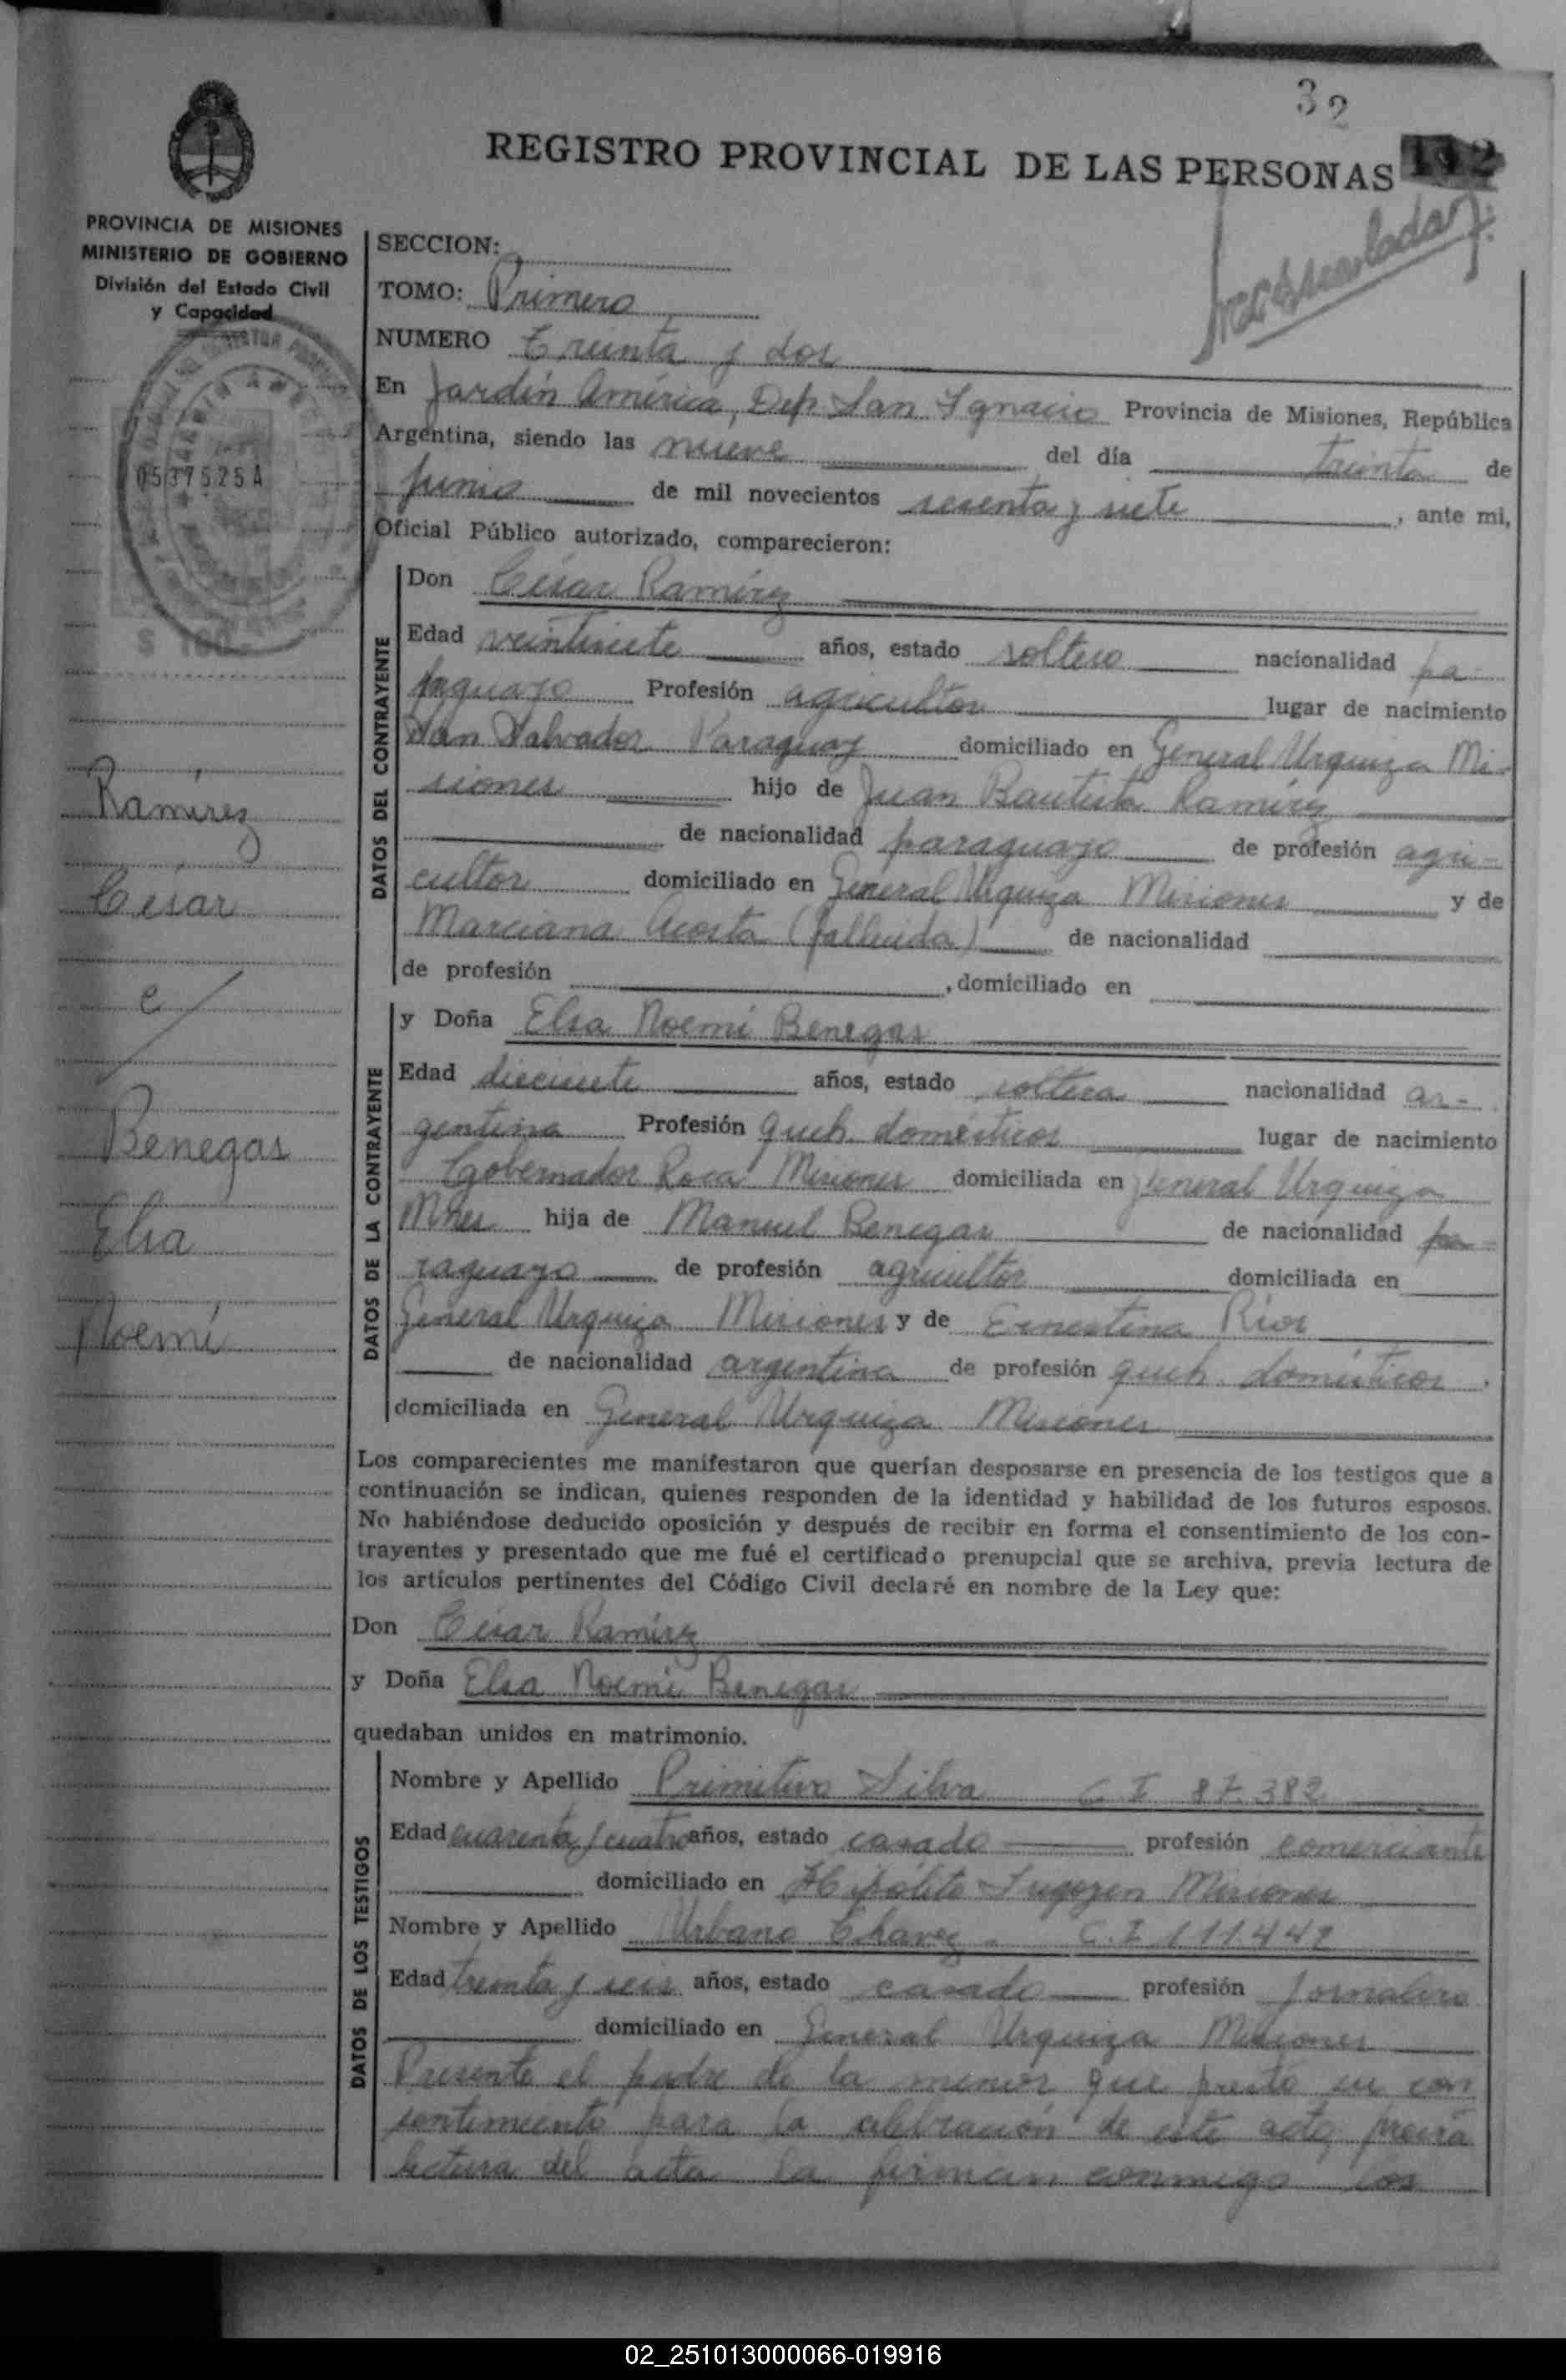 32
REGISTRO PROVINCIAL DE LAS PERSONAS 112
PROVINCIA DE MISIONES
MINISTERIO DE GOBIERNO
División del Estado Civil
y Capacidad
0537525A
$ 100
SECCION:
TOMO: Primero
NUMERO Treinta y dos
En Jardín América, Dep. San Ignacio Provincia de Misiones, República
Argentina, siendo las nueve del día treinta de
junio de mil novecientos sesenta y siete, ante mi,
Oficial Público autorizado, comparecieron:
DATOS DEL CONTRAYENTE
Don César Ramírez
Edad veintisiete años, estado soltero nacionalidad pa-
raguayo Profesión agricultor lugar de nacimiento
San Salvador Paraguay domiciliado en General Urquiza Mi-
siones hijo de Juan Bautista Ramírez
de nacionalidad paraguayo de profesión agri-
cultor domiciliado en General Urquiza Misiones y de
Marciana Acosta (fallecida) de nacionalidad
de profesión , domiciliado en
Ramirez
César
c/
Benegas
Elsa
Noemí
DATOS DE LA CONTRAYENTE
y Doña Elsa Noemí Benegas
Edad diecisiete años, estado soltera nacionalidad ar-
gentina Profesión queh. domésticos lugar de nacimiento
Gobernador Roca Misiones domiciliada en General Urquiza
Mnes hija de Manuel Benegas de nacionalidad pa-
raguayo de profesión agricultor domiciliada en
General Urquiza Misiones y de Ernestina Rios
de nacionalidad argentina de profesión queh. domésticos.
domiciliada en General Urquiza Misiones
Los comparecientes me manifestaron que querían desposarse en presencia de los testigos que a
continuación se indican, quienes responden de la identidad y habilidad de los futuros esposos.
No habiéndose deducido oposición y después de recibir en forma el consentimiento de los con-
trayentes y presentado que me fué el certificado prenupcial que se archiva, previa lectura de
los artículos pertinentes del Código Civil declaré en nombre de la Ley que:
Don César Ramírez
y Doña Elsa Noemí Benegas
quedaban unidos en matrimonio.
DATOS DE LOS TESTIGOS
Nombre y Apellido Primitivo Silva C. I 87.382
Edad cuarenta y cuatro años, estado casado profesión comerciante
domiciliado en Hipólito Irigoyen Misiones
Nombre y Apellido Urbano Chavez. C. I 111.442
Edad treinta y seis años, estado casado profesión jornalero
domiciliado en General Urquiza Misiones
Presente el padre de la menor que prestó su con
sentimiento para la celebración de este acto, previa
lectura del acta la firman conmigo los
02_251013000066-019916